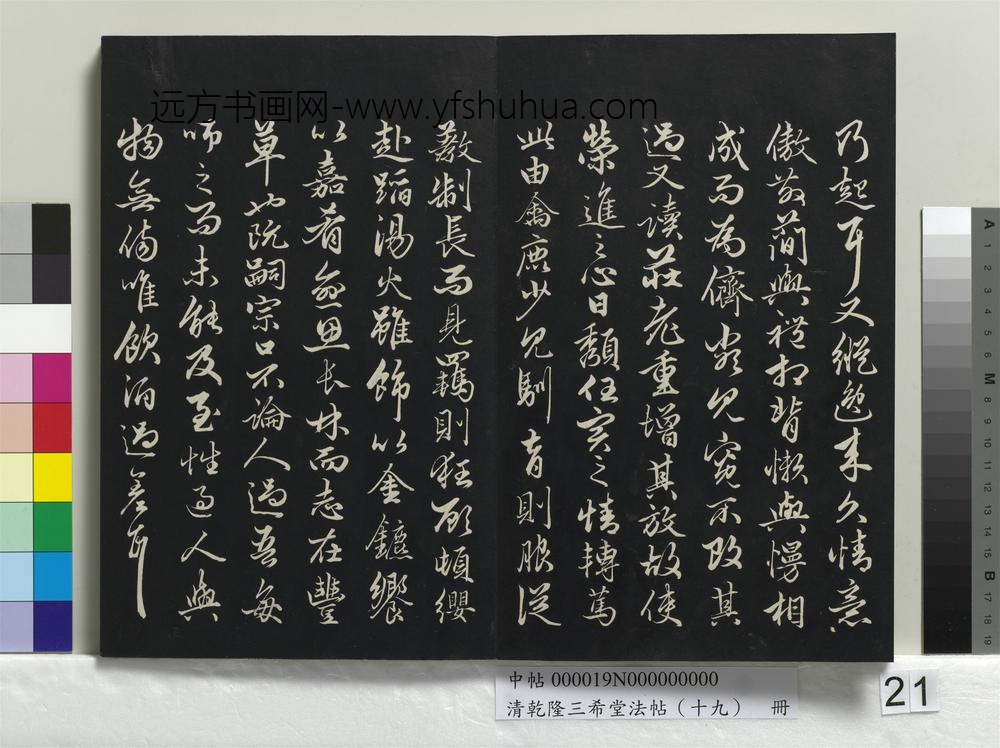 远方书画网-www.yfshuhua.com
乃起耳又縱逸来久情意
傲散簡與禮相背懶與慢相
成而為儕類見寬不攻其
過又讀莊老重增其放故使
榮進之心日頽任實之情轉篤
此由禽鹿少見馴育則服從
教制長而見羈則狂顧頓纓
赴蹈湯火雖飾以金鑣饗
以嘉肴愈思長林而志在豐
草也阮嗣宗口不論人過吾每
師之而未能及至性過人與
物無傷唯飲酒過差耳
中帖 000019N000000000
清乾隆三希堂法帖（十九） 冊
21
A
1
2
3
4
5
6
M
8
9
10
11
12
13
14
15
B
17
18
19